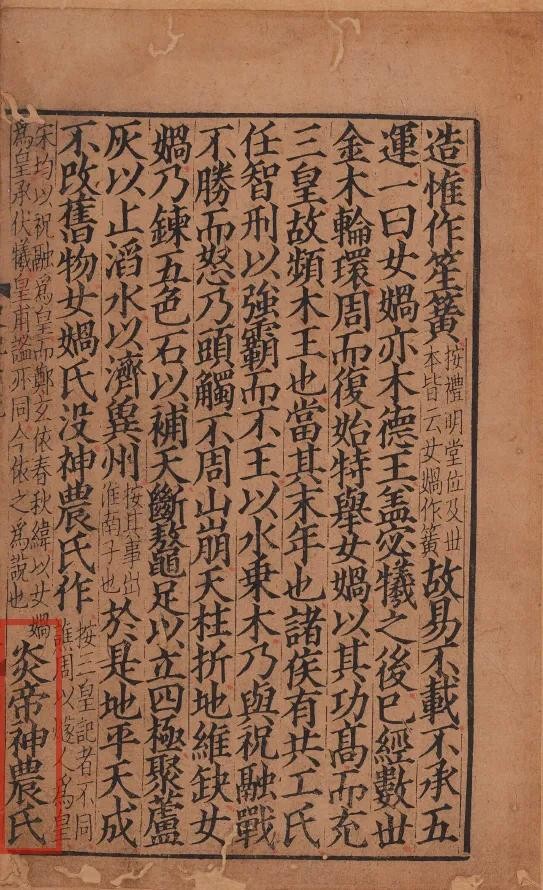 造惟作笙簧按禮明堂位及世本皆云女媧作簧故易不載不承五
運一曰女媧亦木德王盖宓犧之後已經數世
金木輪環周而復始特舉女媧以其功髙而充
三皇故頻木王也當其末年也諸侯有共工氏
任智刑以強霸而不王以水乗木乃與祝融戰
不勝而怒乃頭觸不周山崩天柱折地維缺女
媧乃鍊五色石以補天斷鼇足以立四極聚蘆
灰以止滔水以濟兾州按其事出淮南子也於是地平天成
不改舊物女媧氏没神農氏作按三皇記者不同譙周以燧人為皇
宋均以祝融爲皇而鄭玄依春秋緯以女媧爲皇承伏犧皇甫謐亦同今依之爲說也炎帝神農氏